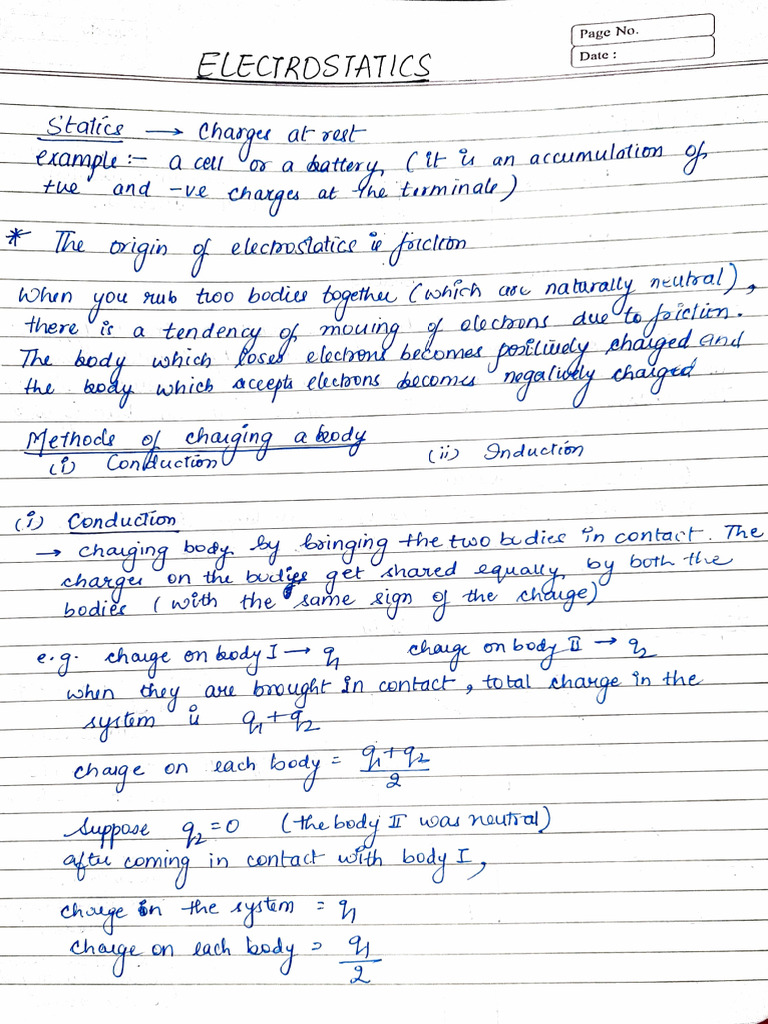 Page No.
Date :
ELECTROSTATICS
Statics → Charges at rest
example:- a cell or a battery, (it is an accumulation of
+ve and -ve charges at the terminals)
* The origin of electrostatics is friction
When you rub two bodies together (which are naturally neutral),
there is a tendency of moving of electrons due to friction.
The body which loses electrons becomes positively charged and
the body which accepts electrons becomes negatively charged
Methods of charging a body
(i) Conduction (ii) Induction
(i) Conduction
→ charging body by bringing the two bodies in contact. The
charges on the bodies get shared equally by both the
bodies (with the same sign of the charge)
e.g. charge on body I → q1 charge on body II → q2
when they are brought in contact, total charge in the
system is q1 + q2
charge on each body = (q1 + q2)/2
Suppose q2 = 0 (the body II was neutral)
after coming in contact with body I,
charge in the system = q1
charge on each body = q1/2